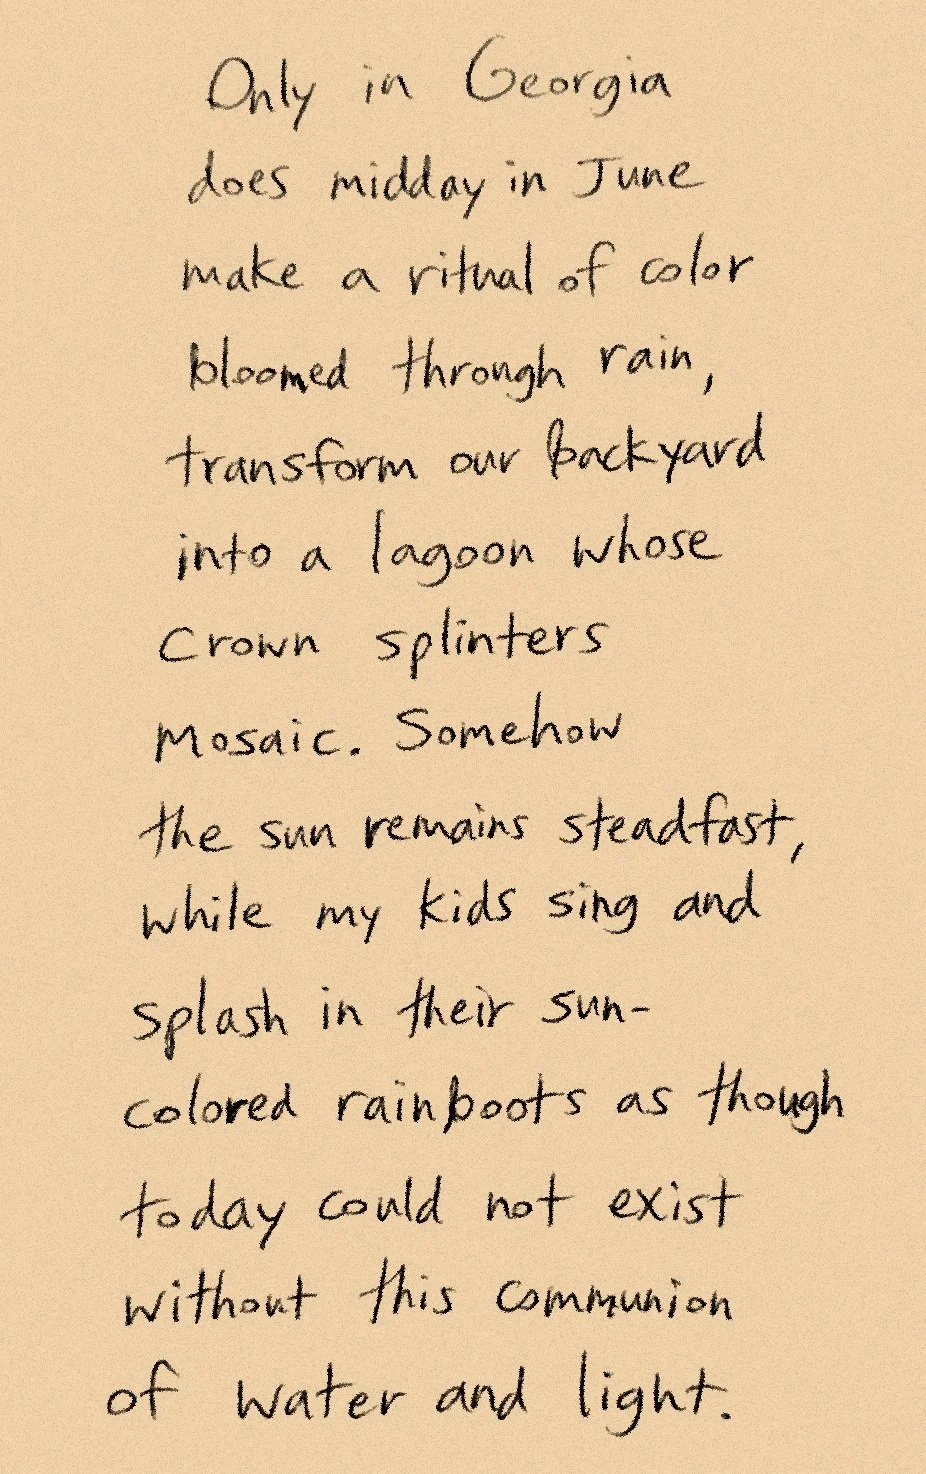 Only in Georgia
does midday in June
make a ritual of color
bloomed through rain,
transform our backyard
into a lagoon whose
crown splinters
mosaic. Somehow
the sun remains steadfast,
while my kids sing and
splash in their sun-
colored rainboots as though
today could not exist
without this communion
of water and light.